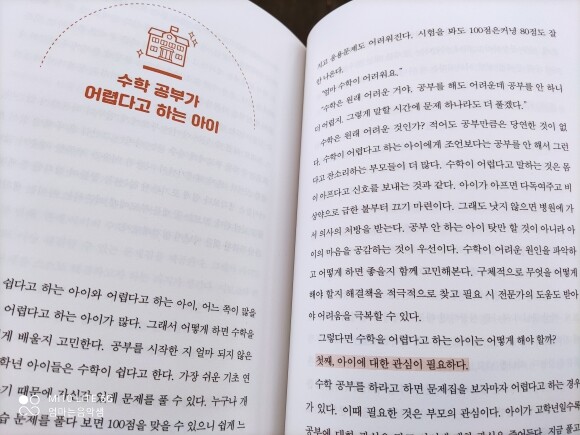 수학 공부가
어렵다고 하는 아이
쉽다고 하는 아이와 어렵다고 하는 아이, 어느 쪽이 많을
어렵다고 하는 아이가 많다. 그래서 어떻게 하면 수학을
게 배울지 고민한다. 공부를 시작한 지 얼마 되지 않은
학년 아이들은 수학이 쉽다고 한다. 가장 쉬운 기초 연
기 때문에 자신감 있게 문제를 풀 수 있다. 누구나 개
습 문제를 풀다 보면 100점을 맞을 수 있으니 쉽게 느
지고 응용문제도 어려워진다. 시험을 봐도 100점은커녕 80점도 잘
안 나온다.
"엄마 수학이 어려워요."
"수학은 원래 어려운 거야. 공부를 해도 어려운데 공부를 안 하니
더 어렵지. 그렇게 말할 시간에 문제 하나라도 더 풀겠다."
수학은 원래 어려운 것인가? 적어도 공부만큼은 당연한 것이 없
다. 수학이 어렵다고 하는 아이에게 조언보다는 공부를 안 해서 그런
다고 잔소리하는 부모들이 더 많다. 수학이 어렵다고 말하는 것은 몸
이 아프다고 신호를 보내는 것과 같다. 아이가 아프면 다독여주고 비
상약으로 급한 불부터 끄기 마련이다. 그래도 낫지 않으면 병원에 가
서 의사의 처방을 받는다. 공부 안 하는 아이 탓만 할 것이 아니라 아
이의 마음을 공감하는 것이 우선이다. 수학이 어려운 원인을 파악하
고 어떻게 하면 좋을지 함께 고민해본다. 구체적으로 무엇을 어떻게
해야 할지 해결책을 적극적으로 찾고 필요 시 전문가의 도움도 받아
야 어려움을 극복할 수 있다.
그렇다면 수학을 어렵다고 하는 아이는 어떻게 해야 할까?
첫째, 아이에 대한 관심이 필요하다.
수학 공부를 하라고 하면 문제집을 보자마자 어렵다고 하는 경우
가 있다. 이때 필요한 것은 부모의 관심이다. 아이가 고학년일수록